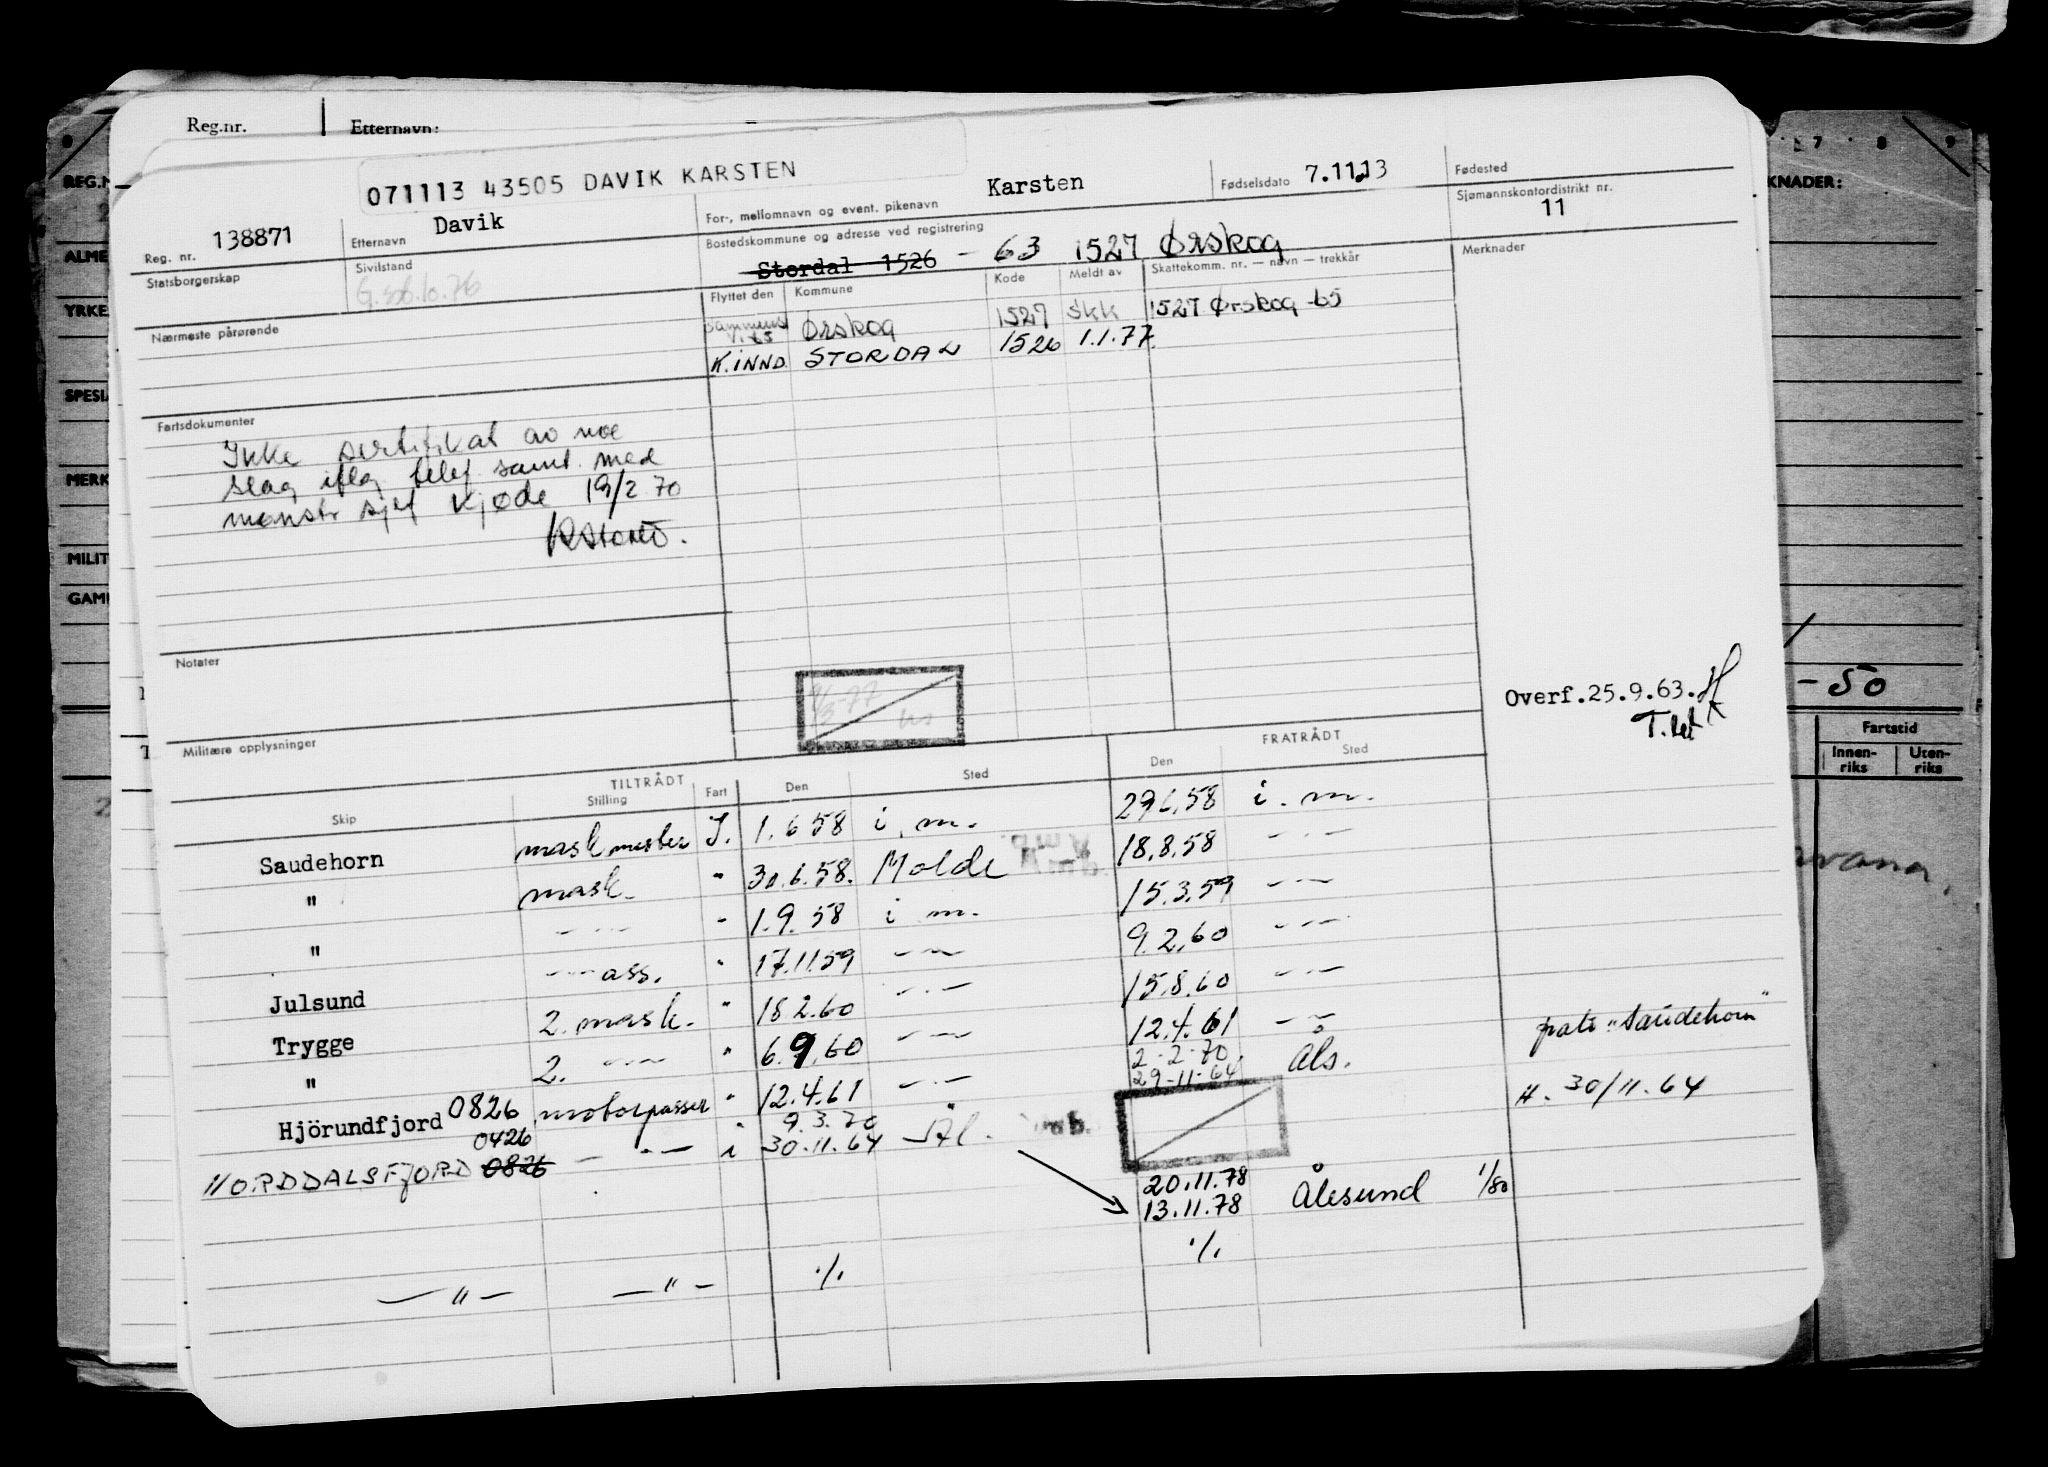 Reg.nr. Etternavn:
071113 43505 DAVIK KARSTEN
138871 Davik Karsten 7.11.13
Reg. nr. Etternavn For-, mellomnavn og event. pikenavn Fødselsdato Fødested
Statsborgerskap Sivilstand Bostedskommune og adresse ved registrering Sjømannskontordistrikt nr.
11
Stordal 1526 - 63 1527 Ørskog
Flyttet den Kommune Kode Meldt av Skattekomm. nr. — navn — trekkår Merknader
Nærmeste pårørende
Ørskog 1527 Skk 1527 Ørskog 65
K.INND. STORDAL 1526 1.1.77.
Fartsdokumenter
Ikke sertifikat av noe
slag iflg telef. samt. med
mønstr sjef Kjøde 19/2 70
Notater
Overf.25.9.63.
Militære opplysninger
TILTRÅDT FRATRÅDT
Skip Stilling Fart Den Sted Den Sted
Saudehorn mask mester I. 1.6 58 i. m. 29.6.58 i. m.
" mask. " 30.6.58. Molde 18.8.58 — " —
" — " — " 1.9.58 i m. 15.3.59 — " —
Julsund — " — ass. " 17.11.59 — " — 9.2.60 — " —
Trygge 2. mask. " 18.2.60 — " — 15.8.60 — " —
" 2. — " — " 6.9.60 — " — 12.4.61 — " —
Hjörundfjord 0826 motorpasser " 12.4.61 — " — 29-11-64 Åls.
2-2-70
pats "Saudehorn"
9.3.70
NORDDALSFJORD 0826 0426 — " — i 30.11.64 Ål.
H. 30/11.64
20.11.78
13.11.78 Ålesund 1/80
— " — — " — ./. ./.
REG.N
ALME
YRKE
SPESIA
MERK
MILIT
GAML
7 8 9
KNADER:
- 50
Fartstid
Innen-riks Uten-riks